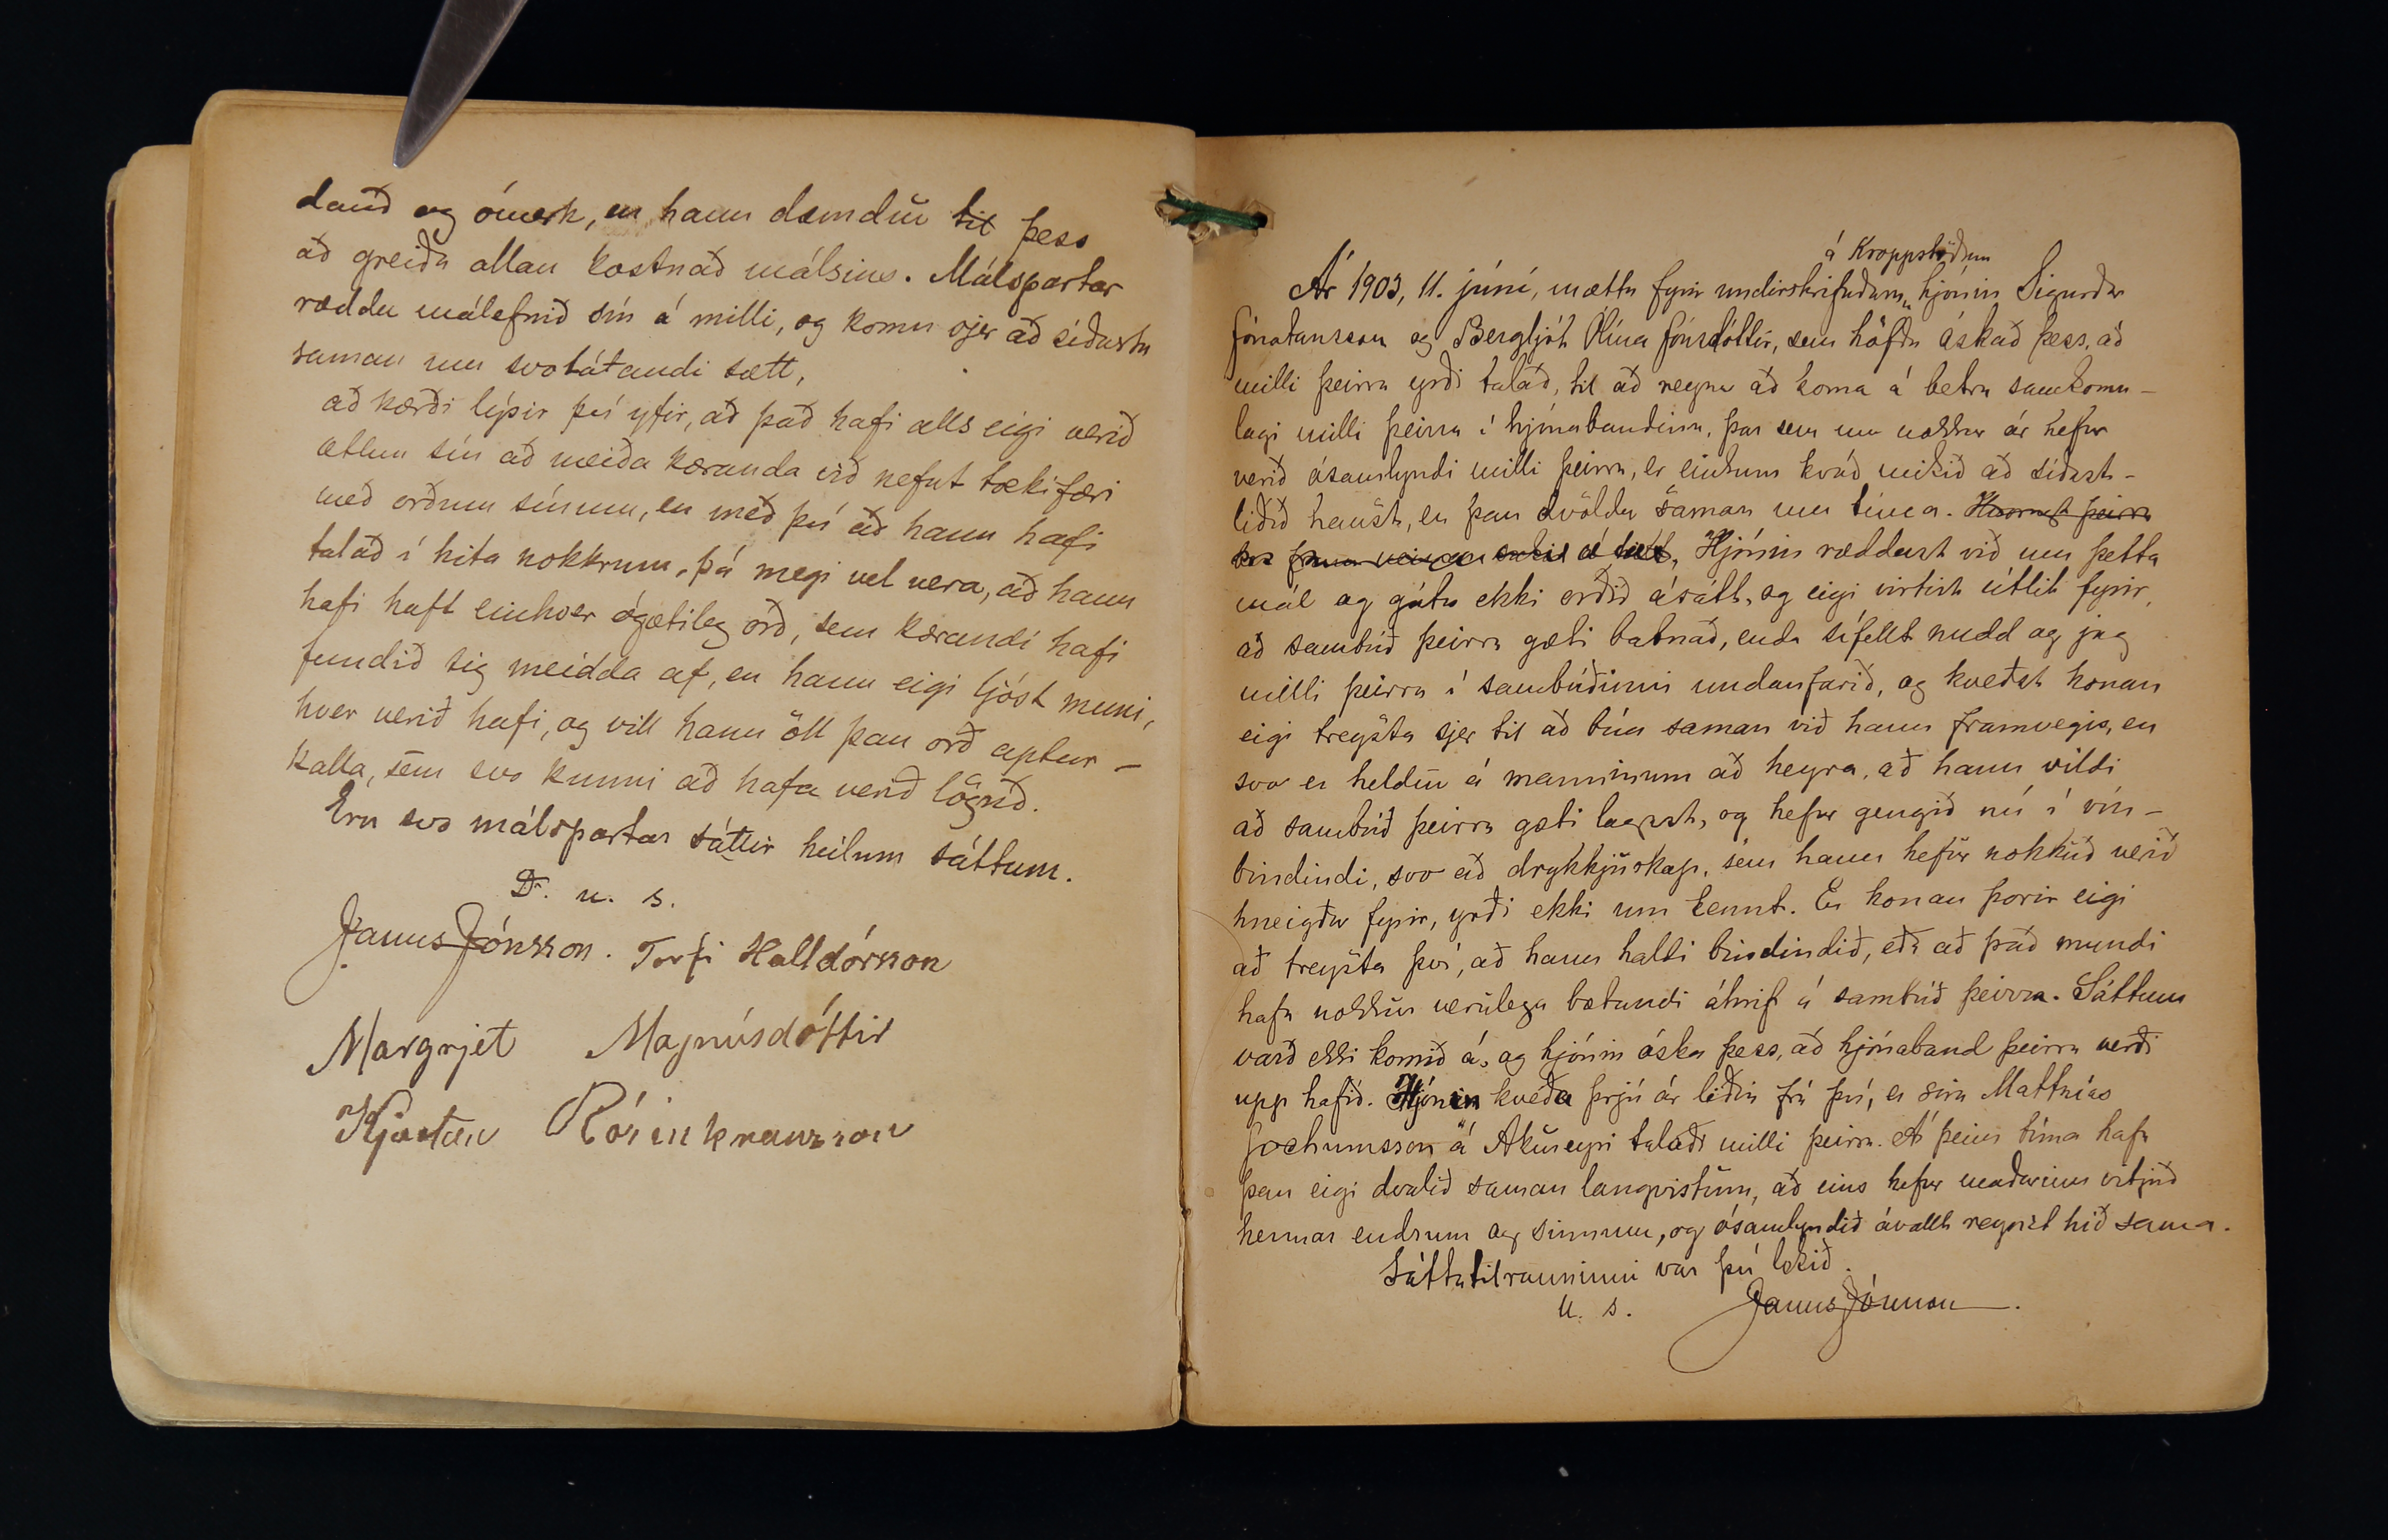 dauð og ómerk, en hann dæmdur til þess
að greiða allan kostnað málsins. Málspartar
ræddu málefnið sín á milli, og komu sjer að síðustu
saman um svolátandi sætt,
að kærði lýsir því yfir, að það hafi alls eigi verið
ætlun sín að meiða kæranda við nefnt tækifæri
með orðum sínum, en með því að hann hafi
talað í hita nokkrum, þá megi vel vera, að hann
hafi haft einhver ógætileg orð, sem kærandi hafi
fundið sig meidda af, en hann eigi ljóst muni,
hver verið hafi, og vill hann öll þau orð aptur-
kalla, sem svo kunni að hafa verið löguð.
Eru svo málspartar sáttir heilum sáttum.
D. u. s.
Janus Jónsson. Torfi Halldórsson
Margrjet Magnúsdóttir
Kjartan Rósinkransson
á Kroppstöðum
Ár 1903, 11. júní, mættu fyrir undirskrifuðum, hjónin Sigurður
Jónatansson og Bergljót Ólína Jónsdóttir, sem höfðu óskað þess, að
milli þeirra yrði talað, til að reyna að koma á betra samkomu-
lagi milli þeirra í hjónabandinu, þar sem um nokkur ár hefur
verið ósamlyndi milli þeirra, er einkum kvað mikið að síðast-
liðið haust, er þau dvöldu saman um tíma. Hvorugt þeirra
Hjónin ræddust við um þetta
mál og gátu ekki orðið ásátt, og eigi virtist útlit fyrir,
að sambúð þeirra gæti batnað, enda sífellt nudd og jag
milli þeirra í sambúðinni undanfarið, og kveðst konan
eigi treysta sjer til að búa saman við hann framvegis, en
svo er heldur á manninum að heyra, að hann vildi
að sambúð þeirra gæti lagast, og hefur gengið nú í vín-
bindindi, svo að drykkjuskap, sem hann hefur nokkuð verið
hneigður fyrir, yrði ekki um kennt. En konan þorir eigi
að treysta því, að hann haldi bindindið, eða að það mundi
hafa nokkur veruleg bætandi áhrif á sambúð þeirra. Sáttum
varð ekki komið á, og hjónin óska þess, að hjónaband þeirra verði
upp hafið. Hjónin kveða þrjú ár liðin frá því, er síra Matthías
Jochumsson á Akureyri talaði milli þeirra. Á þeim tíma hafa
þau eigi dvalið saman langvistum, að eins hefur maðurinn vitjað
hennar endrum og sinnum, og ósamlyndið ávallt reynst hið sama.
Sáttatilrauninni var því lokið.
U. s. Janus Jónsson.